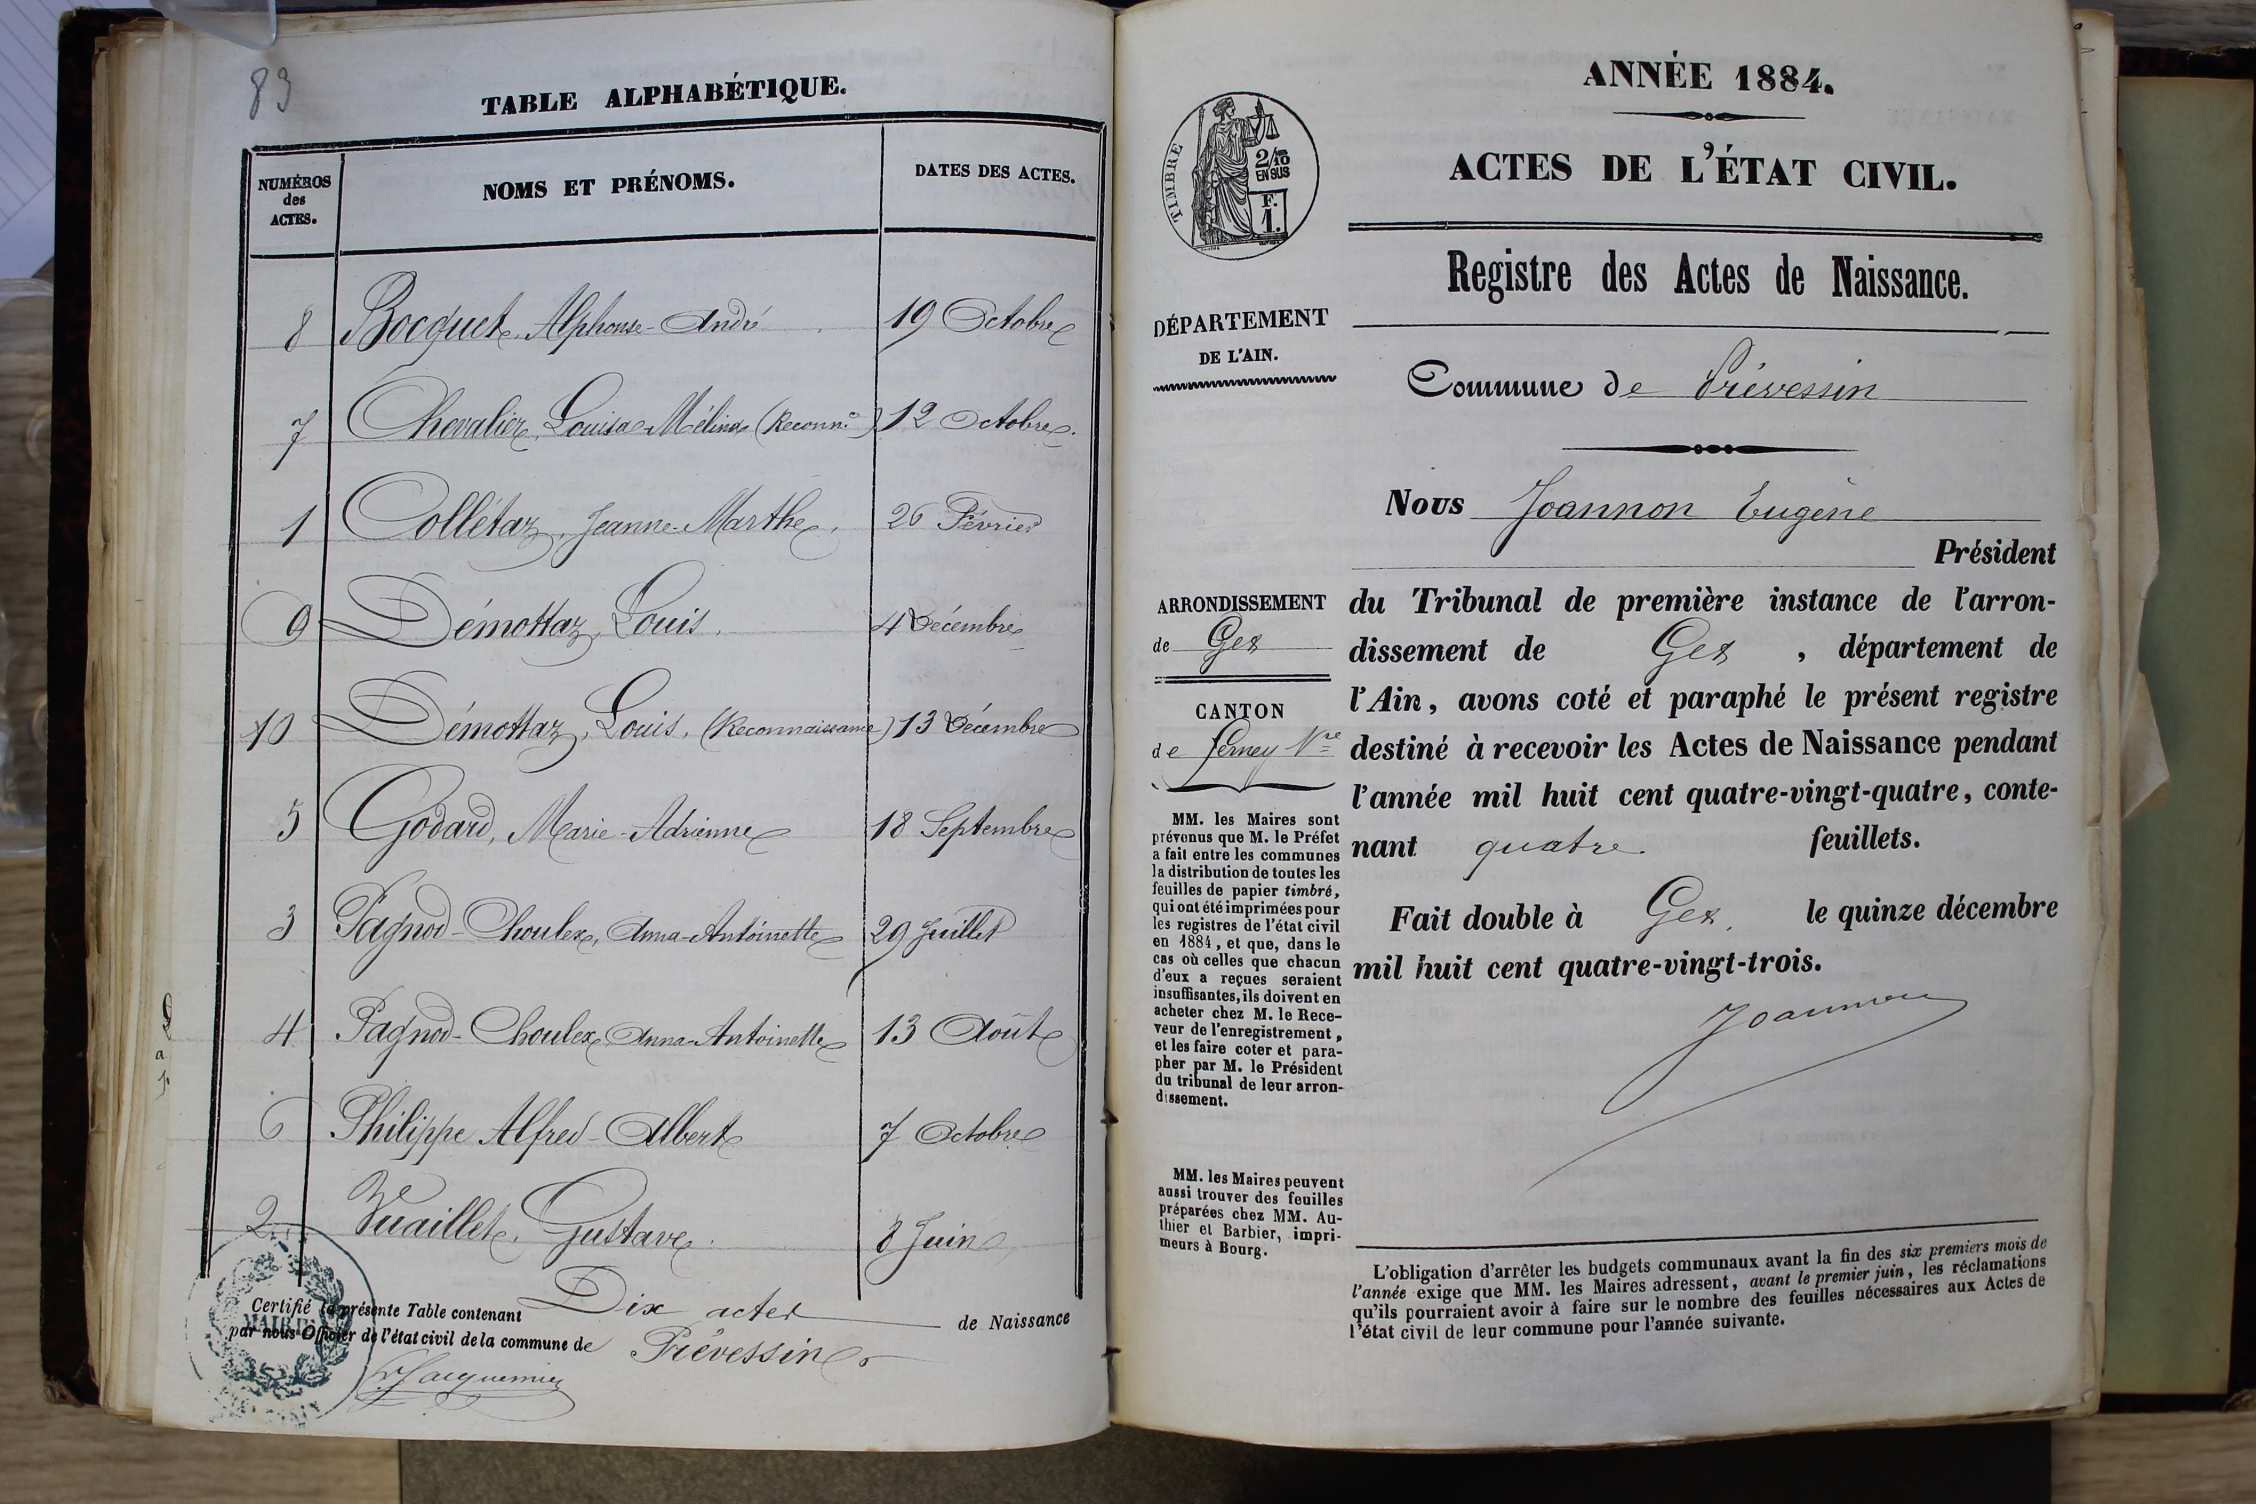 83
TABLE ALPHABÉTIQUE.
NUMÉROS des ACTES.
NOMS ET PRÉNOMS.
DATES DES ACTES.
8 Bocquet, Alphonse-André 19 Octobre
7 Chevalier, Louisa-Mélina (Reconn.ce) 12 Octobre.
1 Collétaz, Jeanne-Marthe, 26 Février
9 Démottaz, Louis. 4 Décembre
10 Démottaz, Louis, (Reconnaissance) 13 Décembre
5 Godard, Marie-Adrienne 18 Septembre
3 Pagnod-Choulex, Anna-Antoinette 29 Juillet
4 Pagnod-Choulex, Anna-Antoinette 13 Août
6 Philippe Alfred-Albert 7 Octobre
2 Vuaillet, Gustave. 8 Juin
Certifié la présente Table contenant Dix actes de Naissance
par nous Officier de l'état civil de la commune de Prévessin
MAIRIE
ANNÉE 1884.
TIMBRE
2/10
EN SUS
F.
1.
ACTES DE L'ÉTAT CIVIL.
Registre des Actes de Naissance.
DÉPARTEMENT
DE L'AIN.
Commune de Prévessin
Nous Joannon Eugène
Président
ARRONDISSEMENT
de Gex
CANTON
de Ferney-Vre
du Tribunal de première instance de l'arron-
dissement de Gex, département de
l'Ain, avons coté et paraphé le présent registre
destiné à recevoir les Actes de Naissance pendant
l'année mil huit cent quatre-vingt-quatre, conte-
nant quatre feuillets.
Fait double à Gex, le quinze décembre
mil huit cent quatre-vingt-trois.
Joannon
MM. les Maires sont
prévenus que M. le Préfet
a fait entre les communes
la distribution de toutes les
feuilles de papier timbré,
qui ont été imprimées pour
les registres de l'état civil
en 1884, et que, dans le
cas où celles que chacun
d'eux a reçues seraient
insuffisantes, ils doivent en
acheter chez M. le Rece-
veur de l'enregistrement,
et les faire coter et para-
pher par M. le Président
du tribunal de leur arron-
dissement.
MM. les Maires peuvent
aussi trouver des feuilles
préparées chez MM. Au-
thier et Barbier, impri-
meurs à Bourg.
L'obligation d'arrêter les budgets communaux avant la fin des six premiers mois de
l'année exige que MM. les Maires adressent, avant le premier juin, les réclamations
qu'ils pourraient avoir à faire sur le nombre des feuilles nécessaires aux Actes de
l'état civil de leur commune pour l'année suivante.